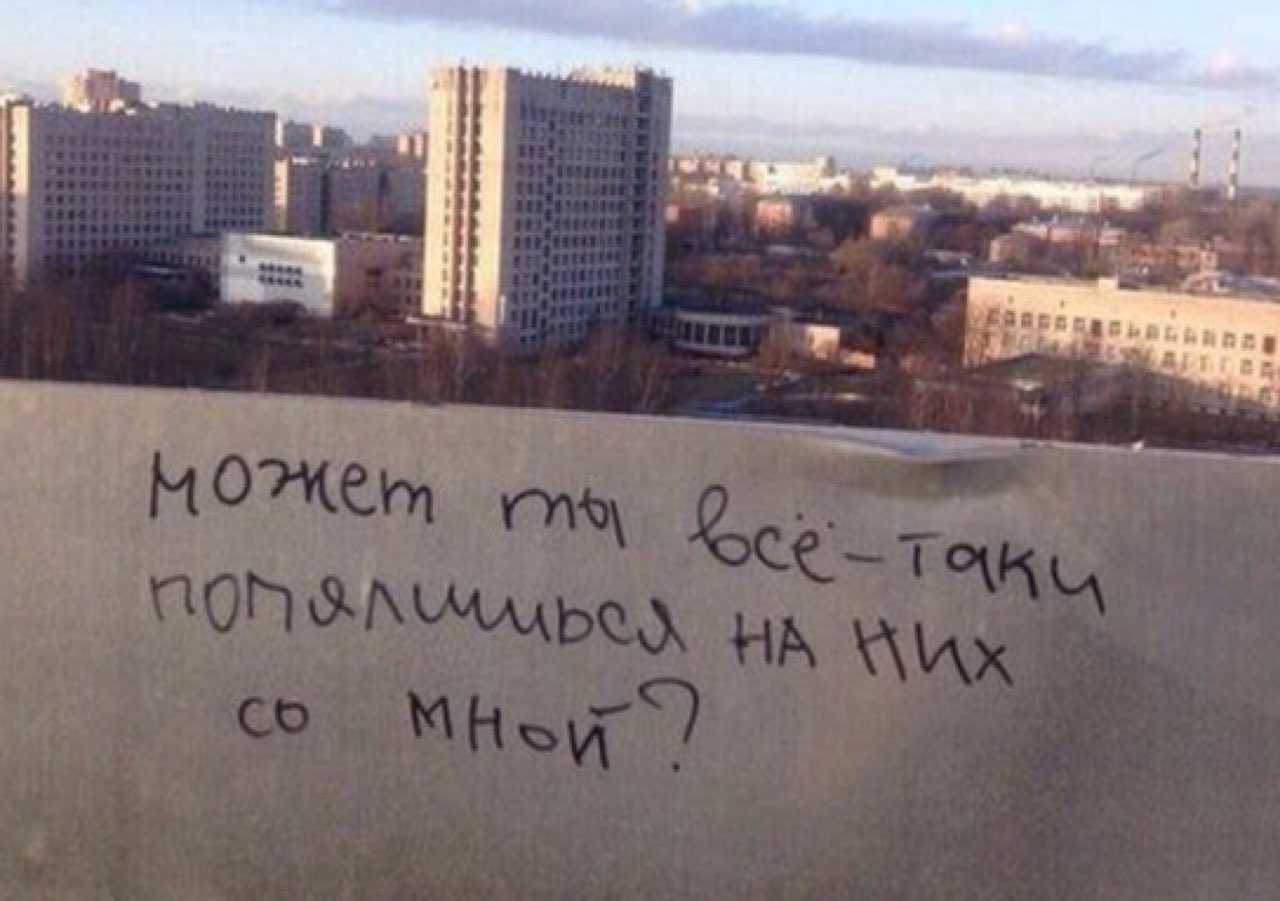 может ты всё-таки
попялишься на них
со мной?